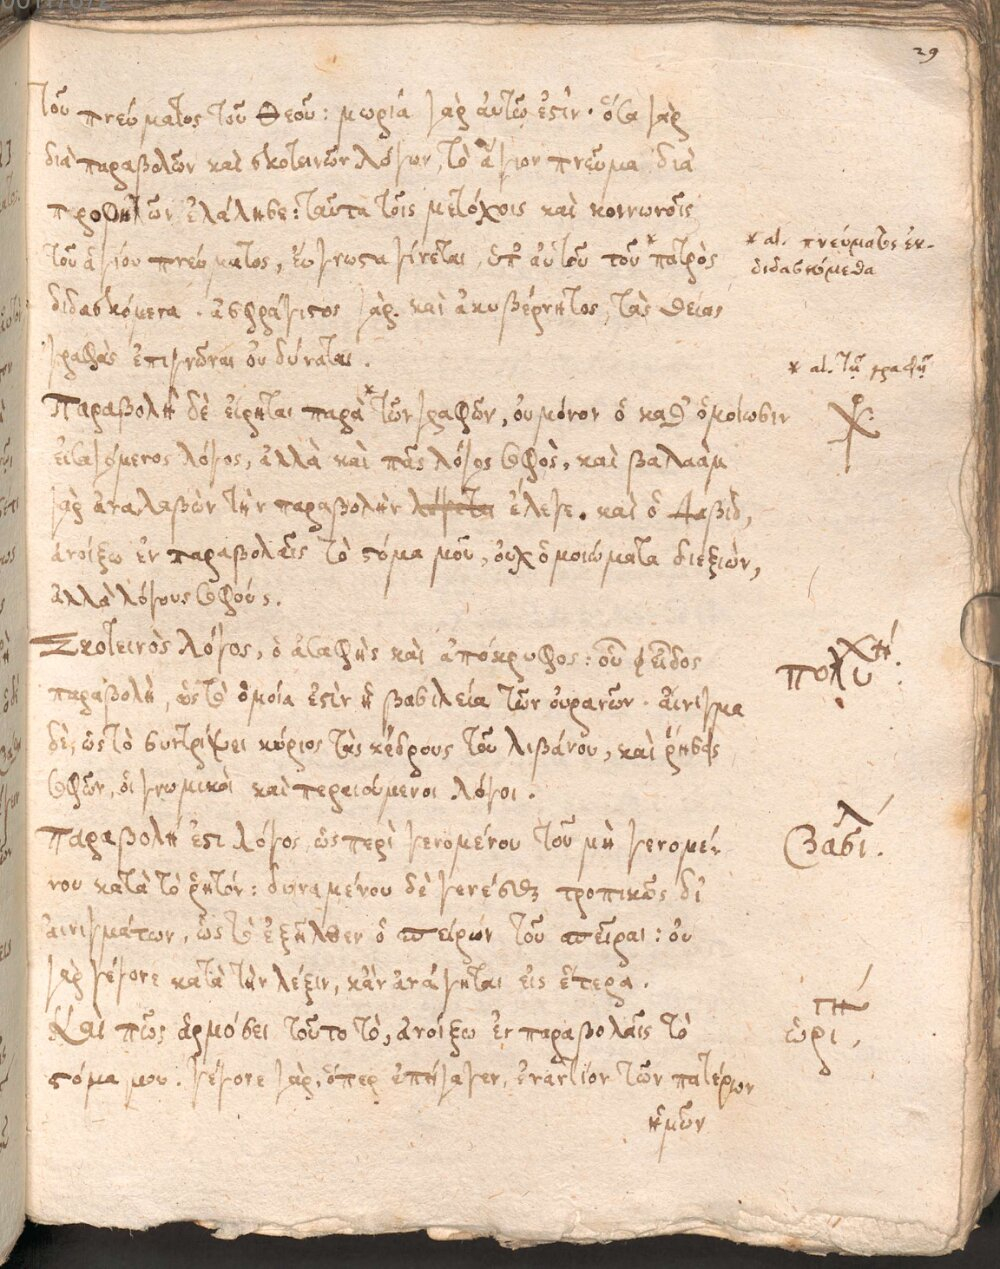 29
τοῦ πνεύματος τοῦ θεοῦ: μωρία γὰρ ἀυτῶ ἐστίν· ὅσα γὰρ
διὰ παραβολῶν καὶ σκοτεινῶν λόγων, τὸ ἅγιον πνεῦμα διὰ
προφητῶν ἐλάλησε: ταῦτα τοῖς μετόχοις καὶ κοινωνοῖς
τοῦ ἁγίου πνεύματος, ἔυγνωστα γίνεται, ὑπ' ἀυτοῦ τοῦ * πατρὸς
* al. πνεύματος ἐκ-
διδασκόμεθα
διδασκόμενα. ἀσφράγιστος γὰρ καὶ ἀκυβέρνητος, τὰς θείας
γραφὰς ἐπιγνῶναι οὐ δύναται.
* al. τῇ γραφῇ
Παραβολὴ δὲ εἴρηται παρὰ * τῶν γραφῶν, ου μόνον ὁ καθ' ὁμοίωσιν
εἰσαγόμενος λόγος, ἀλλὰ καὶ πᾶς λόγος σοφὸς, καὶ βαλαὰμ
γὰρ ἀναλαβὼν τὴν παραβολὴν ἔλεγε. καὶ ὁ Δαβὶδ,
ἀνοίξω ἐν παραβολαῖς τὸ στόμα μου, ὀυχ ὁμοιώματα διεξιὼν,
ἀλλὰ λόγους σοφούς.
Σκοτεινὸς λόγος, ὁ ἀσαφὴς καὶ ἀπόκρυφος: οὗ εἶδος
πολυχ.
παραβολὴ, ὡς τὸ ὁμοία ἐστὶν ἡ βασιλεία τῶν ὀυρανῶν. ἄινιγμα
δὲ, ὡς τὸ συντρίψει κύριος τὰς κέδρους τοῦ λιβάνου, καὶ ῥήσεις
σοφῶν, ὁι γνωμικοὶ καὶ περαιούμενοι λόγοι.
Παραβολή ἐστι λόγος, ὡς περὶ γενομένου τοῦ μὴ γενομέ-
βασιλ.
νου κατὰ τὸ ῥητόν: δυναμένου δὲ γενέσθαι τροπικῶς δι'
ἀινιγμάτων, ὡς τὸ ἐξῆλθεν ὁ σπείρων τοῦ σπεῖραι: ὀυ
γὰρ γέγονε κατὰ τὴν λέξιν, κἂν ἀνάγηται εἰς ἕτερα.
Καὶ πῶς ἁρμόσει τοῦτο τὸ, ἀνοίξω ἐν παραβολαῖς τὸ
ὠριγ.
στόμα μου. γέγονε γὰρ, ὅπερ ἐπήγαγεν, ἐναντίον τῶν πατέρων
ἡμῶν